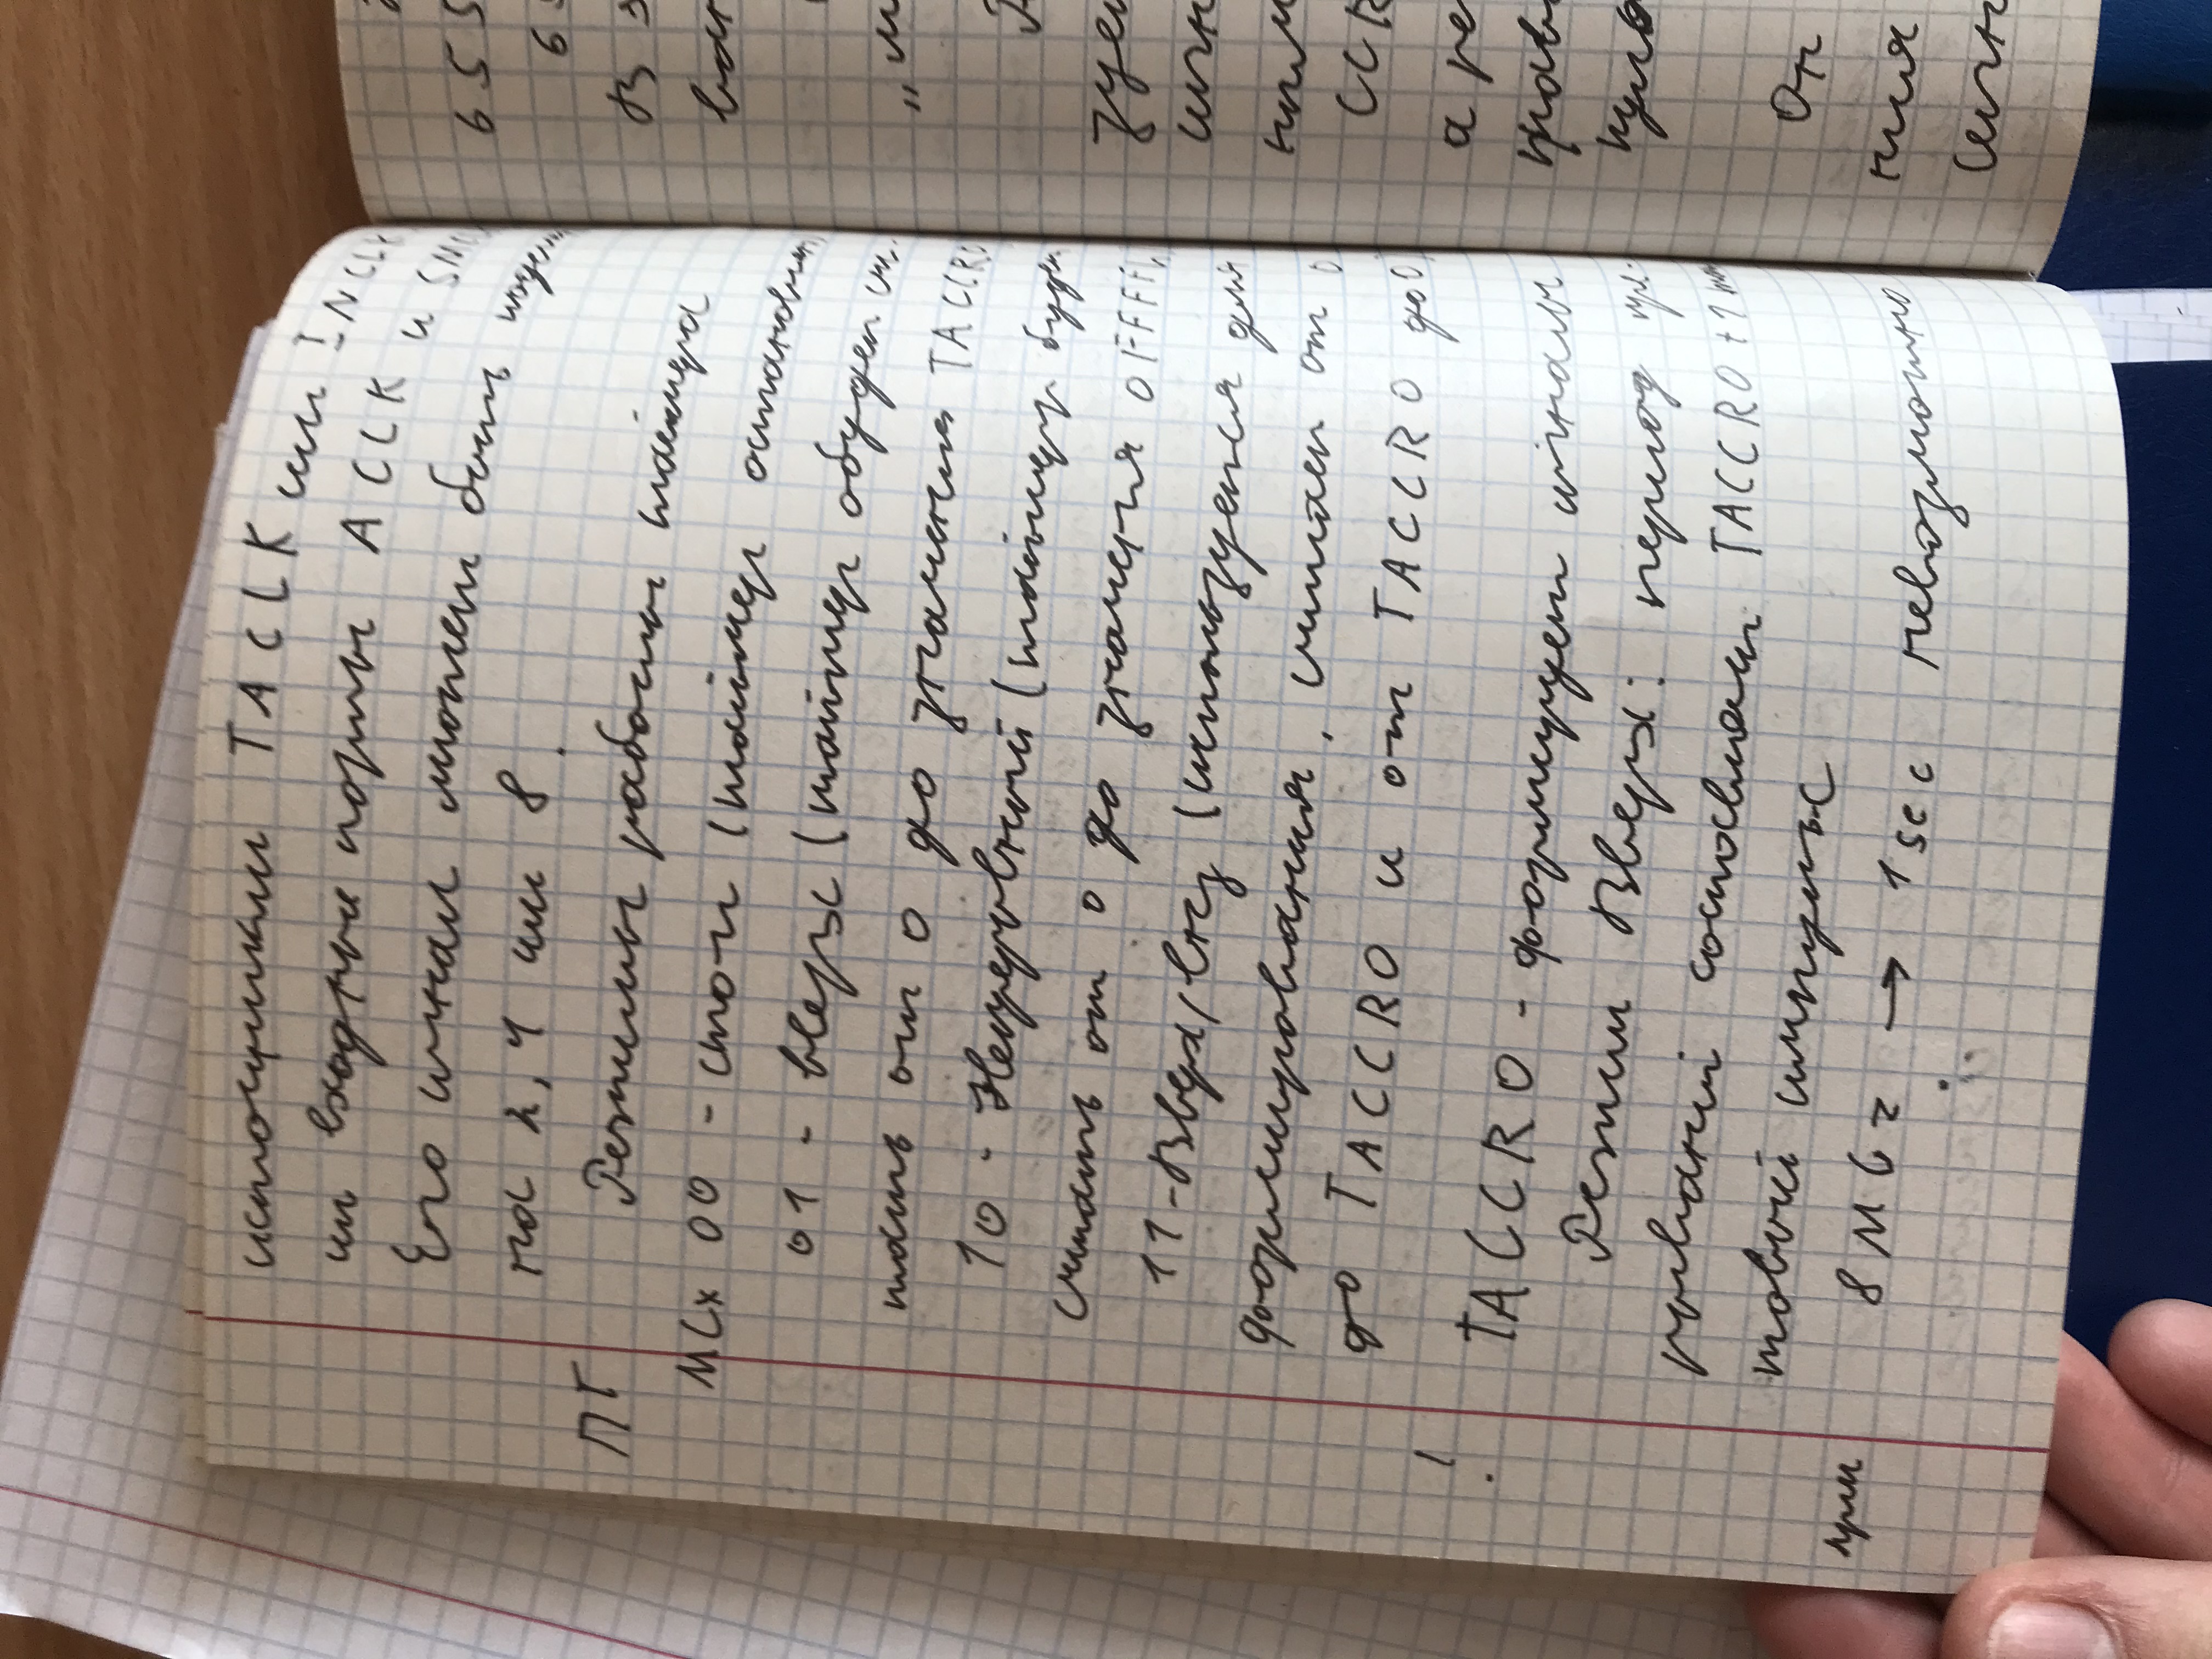 источники TACLK или INCLK
ил входные порты ACLK и SMC
Его сигнал может быть подел
на 2, 4 или 8.
ПГ Режимы работы таймера
MCx 00 - стоп (таймер остановлен
01 - вверх (таймер обудет счи-
тать от 0 до значения TACCR0
10 - Непрерывный (таймер будет
считать от 0 до значения 0FFFF
11 - Вверх/вниз (используется для
формирования, считает от 0
до TACCR0 и от TACCR0 до 0
! TACCR0 - формирует сигналы
Режим Вверх: период пре-
рываний составляет TACCR0 + 1 так
товый импульс
прим 8 МГz → 1 sec невозможно
655
65
В з
ват
„м
Р
зует
сигн
ним
CCR
а ре
прав
нуло
Он
ния
сигн